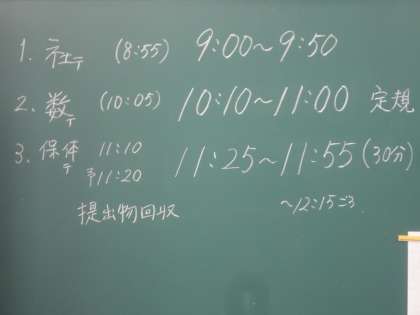 1. 社テ (8:55) 9:00~9:50
2. 数テ (10:05) 10:10~11:00 定規
3. 保体テ 11:10 11:25~11:55 (30分)
予11:20
提出物回収 ~12:15ごろ